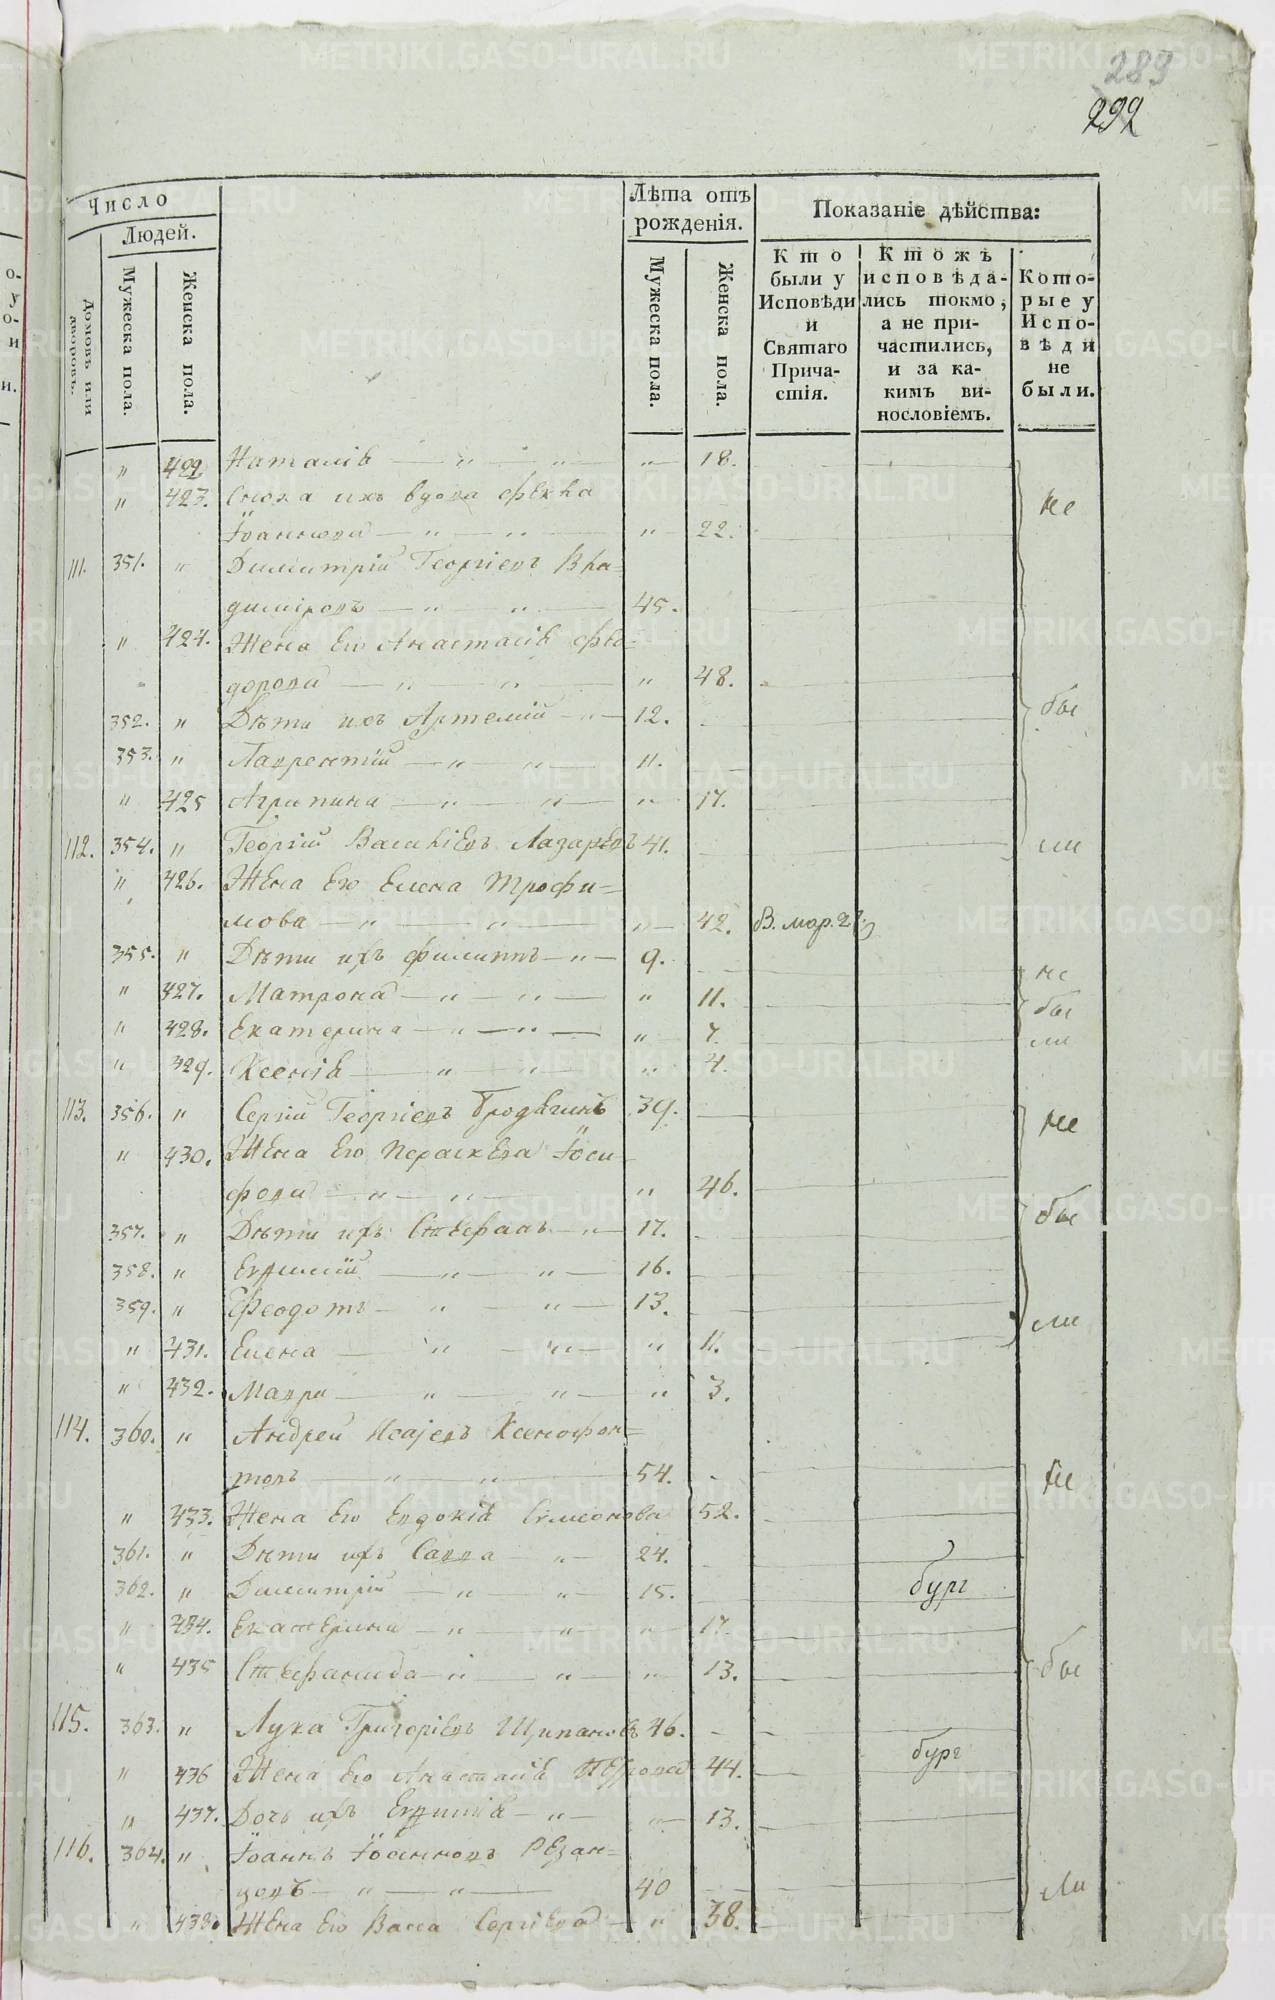 289
292
Число
Людей.
Домовъ или дворовъ.
Мужеска пола.
Женска пола.
Лѣта отъ рожденія.
Мужеска пола.
Женска пола.
Показаніе дѣйства:
Кто были у Исповѣди и Святаго Прича-стія.
Ктожъ исповѣда-лись токмо, а не при-частились, и за ка-кимъ ви-нословіемъ.
Кото-рые у Испо-вѣди не были.
" 422 Наталія — " — " — " — 18.
" 423. Сноха ихъ вдова Ѳекла
Іоаннова — " — " — " — 22. не
111. 351. " Димитрій Георгіевъ Вла=
димировъ — " — " — 45.
" 424. Жена Его Анастасія Ѳео=
дорова — " — " — " 48.
352. " Дѣти ихъ Артемій — " — 12. бы
353. " Лаврентій — " — " — 11.
" 425 Агрипина — " — " — " — 17.
112. 354. " Георгій Василіевъ Лазаревъ 41. ли
" 426. Жена Его Елена Трофи=
мова — " — " — " — 42. В. мар. 27
355. " Дѣти ихъ Филиппъ — " — 9. не
" 427. Матрона — " — " — " 11.
" 428. Екатерина — " — " — " 7. бы
" 329. Ксенія — " — " — " 4. ли
113. 356. " Сергій Георгіевъ Бродягинъ 39.
" 430. Жена Его Параскева Іоси= не
фова — " — " — " 46.
357. " Дѣти ихъ Стефанъ — " — 17. бы
358. " Евѳимій — " — " — 16.
359. " Ѳеодотъ — " — " — 13.
" 431. Елена — " — " — " 11. ли
" 432. Мавра — " — " — " 3.
114. 360. " Андрей Исаіевъ Ксенофон=
товъ — " — " — 54. не
" 433. Жена Его Евдокія Симеонова 52.
361. " Дѣти ихъ Савва — " — 24.
362. " Димитрій — " — " — 15. бург
" 434. Екатерина — " — " — " — 17.
" 435 Стефанида — " — " — " — 13. бы
115. 363. " Лука Григоріевъ Щипановъ 46.
" 436 Жена Его Анастасія Петрова 44. бург
" 437. Дочь ихъ Евѳимія — " — " — 13.
116. 364. " Іоаннъ Іоанновъ Рѣзан=
цовъ — " — " — 40 ли
" 438. Жена Его Васса Сергіева — " 38.
METRIKI.GASO-URAL.RU